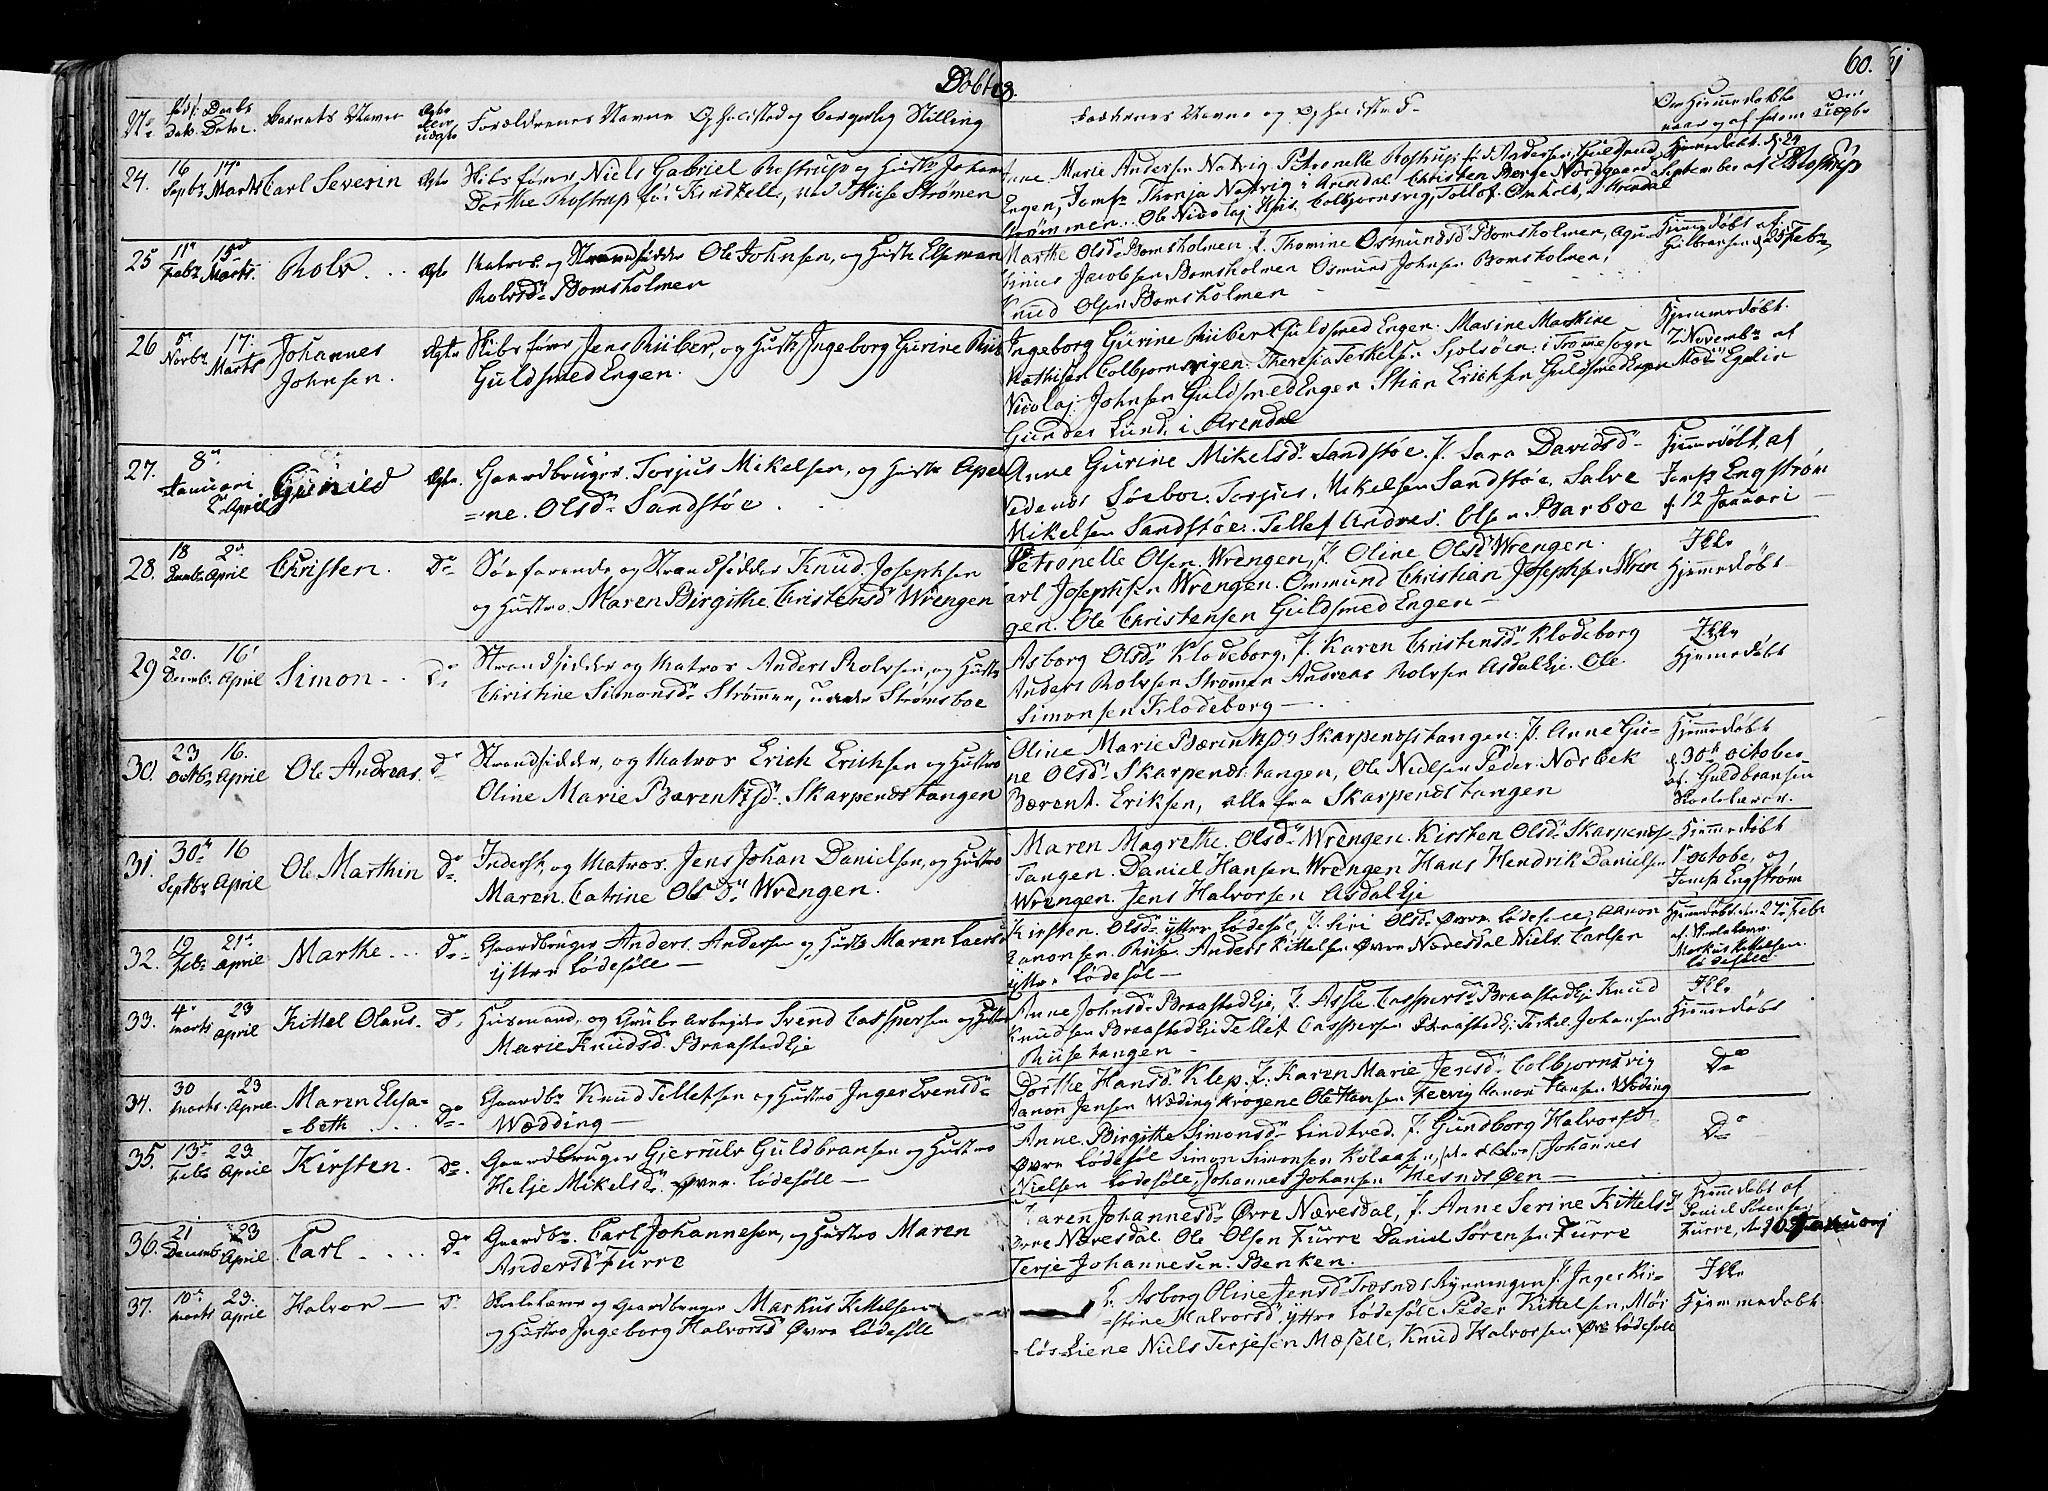 Døbte.
60.
No
Föds: Daabs
Dat. Datoe.
Barnets Navn
Ægte eller uægte
Forældrenes Navne Op, holdsted og borgerlig Stilling
Faddernes Navne og Opholdsted
Om Hjemmedøbte naar og af hvem
24. 16 Septbr 17de Marts Carl Severin Ægte
Skibsfører Niels Gabriel Rostrup og Hustr Johan
Dorthe Rostrup fö: Kindtell, ved Hiise Strømen
Anne Marie Andersen Natvig Petronelle Rostrup
Engen, Jomfr Thonja Natvig i Arendal Christen Berse Nordgaard
Strömmen. Ole Nicolaj Hiis. Colbjornsvig, Tellef Omholt, i Arendal
Hjemmedøbt. d. 29 September af Rostrup
25 11te Febr 15de Marts. Rolv Ægte
Matros. og Strandsidder Ole Johnsen, og Hustr Else Mari
Rolvsdr Bomsholmen
Marthe Olsdr Bomsholmen. J. Thomine Osmundsdr Bomsholmen,
Jacobsen Bomsholmen Osmund Johnsen Bomsholmen,
Knud Olsen Bomsholmen
Hjemmedøbt af Gulbransen d. 25 Febr
26 5te Novbr 17. Marts Johannes Johnsen. Ægte
Skibsfører Jens Riiber, og Hustr Ingeborg Gurine Riib
Guldsmed Engen.
Ingeborg Gurine Riiber Guldsmed Engen. Masine Marthine
Mathisen Colbjornsvigen. Theresia Terkelsen Sjolsöen i Tromøe sogn
Nicolaj Johnsen Guldsmed Engen Stian Erichsen Guldsmed Engen
Gunder Lund. i Arendal
Hjemmedøbt. 7 Novembr af Mad Egelin
27. 8de Januari 2 April Gunild Ægte.
Gaardbruger. Torjus Mikelsen, og Hustr Apel
=ne. Olsdr Sandstøe
Anne Gurine Mikelsdr Sandstøe. J. Sara Davidsdr
Nedenes Søeboe. Torjus, Mikelsen Sandstøe, Salve
Mikelsen Sandstøe. Tellef Andres. Olsen Barboe
Hjemmedøbt. af Jomfr Engström d. 12 Januari
28. 18 2de April Christen. Do
Søefarende og Strandsidder Knud. Josephsen
og Hustro Maren Birgithe. Christensdr Wrengen
Petronelle Olsen. Wrengen, J. Oline Olsdr Wrengen.
Carl Josephsen Wrengen. Ommund Christian Josephsen Wren
gen. Ole Christensen Guldsmed Engen
Ikke Hjemmedøbt
29 20. Decemb. 16 April Simon Do
Strandsidder og Matros Anders Rolvsen, og Hustr
Christine Simonsdr Strømmen, under Strømsboe
Asborg Olsdr Klodeborg, J. Karen Christensdr Klodeborg
Anders Rolvsen Strommen Andreas Rolvsen Asdal Eje. Ole
Simonsen Klodeborg
Ikke Hjemmedøbt
30. 23 Octbr. 16. April Ole Andreas. Do
Strandsidder, og Matros Erich Erichsen og Hustro
Oline Marie Bærentsdr Skarpenæs tangen
Oline Marie Bærentsdr Skarpenæstangen: J. Anne Gu=
ne Olsdr Skarpenæs tangen, Ole Nielsen Peder Norbek
Bærent. Eriksen, alle fra Skarpenæstangen
Hjemmedøbt d. 30te october af. Guldbransen Skolelærer.
31. 30te Septbr 16 April Ole Marthin Do
Inderst, og Matros. Jens Johan Danielsen, og Hustro
Maren. Catrine Olsdr Wrengen.
Maren Magrethe. Olsdr Wrengen. Kirsten Olsdr Skarpenæs=
Tangen. Daniel Hansen Wrengen Hans Hendrik Danielsen
Wrengen. Jens Halvorsen Asdal Eje
Hjemmedøbt 1te octobe, og Jomfr Engstrøm
32. 12 Febr 21de April Marthe Do
Gaardbruger Anders. Andersen og Hustr Maren
Yttre Lødesöll
Kirsten. Olsdr yttre Lødesöl, J. Siri Olsdr Øvre Lødesöl, Aanon
Aanonsen. Riise. Anders Kittelsen Øvre Nævesdal Niels. Carlsen
Yttre Lødesöl
Hjemmedøbt. den 27de Febr af Skolelærer Markus Kittelsen. Lödesöll.
33. 4de marts 23 april Kittel Olaus Do
Husmand. og Grube arbejder Svend Caspersen og Hustr
Marie Knudsdr Braastad Eje
Anne Johnsdr Braastad Eje, J. Assle Caspersdr Braastad Eje Knud
Knudsen Braastad Eje Tellef Caspersen Braastad Eje Terkel Johansen
Riise tangen
Ikke Hjemmedøbt
34. 30 marts 23 April. Maren Elisa= =beth Do
Gaardbr Knud Tellefsen og Hustro Inger Evensdr
Wædding
Dorthe Hansdr Klep. J. Karen Marie Jensdr Colbjornsvig
Aanon Jensen Wæding krogene Ole Hansen Feevig Aanon Hansen Wæding
Do
35. 13de Febr 23 April Kirsten. Do.
Gaardbruger Gjerrulv Guldbransen og Hustro
Helje Mikelsdr Øvre Lødesöll
Anne. Birgithe Simonsdr Lindtved. J. Gundborg Halvorsdr
Øvre Lødesöl Simon Simonsen Kolaas, Johannes
Nielsen Lødesöll, Johannes Johansen Hesnæs Øen
Do
36. 21 Decemb. 23 April Carl Do
Gaardbr. Carl Johannesen, og Hustro Maren
Andersdr Furre
Karen Johannesdr Øvre Nævesdal, J. Anne Serine Kittelsdr
Øvre Nævesdal Ole Olsen Furre Daniel Sørensen Furre
Terje Johannesen. Benken.
Hjemmedøbt af Daniel Sörensen Furre, den 10 Januarj
37. 10de marts 23. April Halvor Do
Skolelærer og Gaardbruger Markus Kittelsen
og Hustro Ingeborg Halvorsdr Øvre Lødesöll
Asborg Oline Jensdr Træsnæs Rynningen J. Inger Kir=
=stine Halvorsdr yttre Lødesöll Peder Kittelsen, Möi
Niels Terjesen Mæsell, Knud Halvorsen Øvre Lødesöll
Ikke Hjemmedøbt